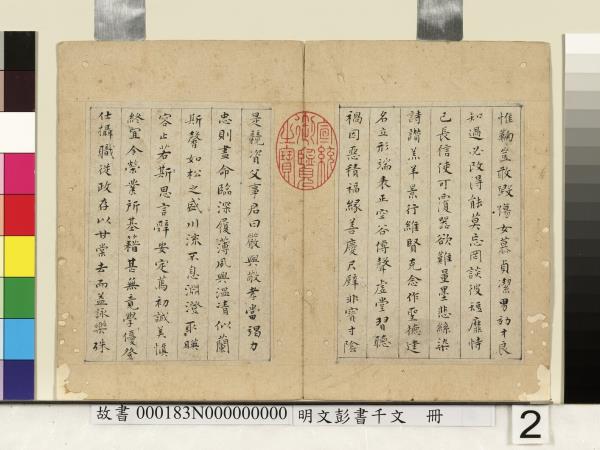 惟鞠豈敢毀傷女慕貞潔男効才良
知過必改得能莫忘罔談彼短靡恃
己長信使可覆器欲難量墨悲絲染
詩讚羔羊景行維賢克念作聖德建
名立形端表正空谷傳聲虛堂習聽
禍因惡積福緣善慶尺璧非寶寸陰
宣統御覽之寶
是競資父事君曰嚴與敬孝當竭力
忠則盡命臨深履薄夙興溫凊似蘭
斯馨如松之盛川流不息淵澄取暎
容止若斯思言辭安定篤初誠美慎
終宜令榮業所基籍甚無竟學優登
仕攝職從政存以甘棠去而益詠樂殊
故書 000183N000000000 明文彭書千文 冊
2